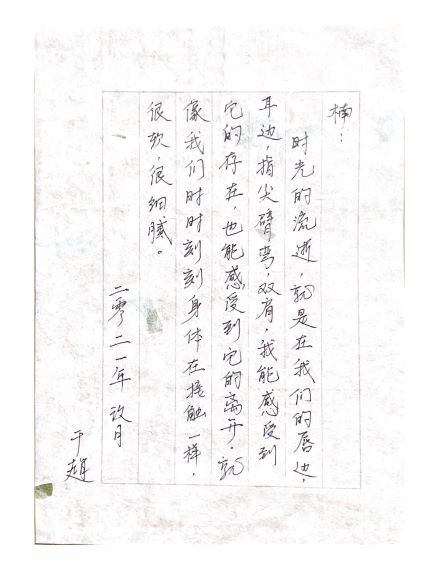 楠：
时光的流逝，就是在我们的唇边，
耳边，指尖臂弯，双肩，我能感受到
它的存在，也能感受到它的离开，就
像我们时时刻刻身体在接触一样，
很软，很细腻。
二零二一年 玖月
于趙